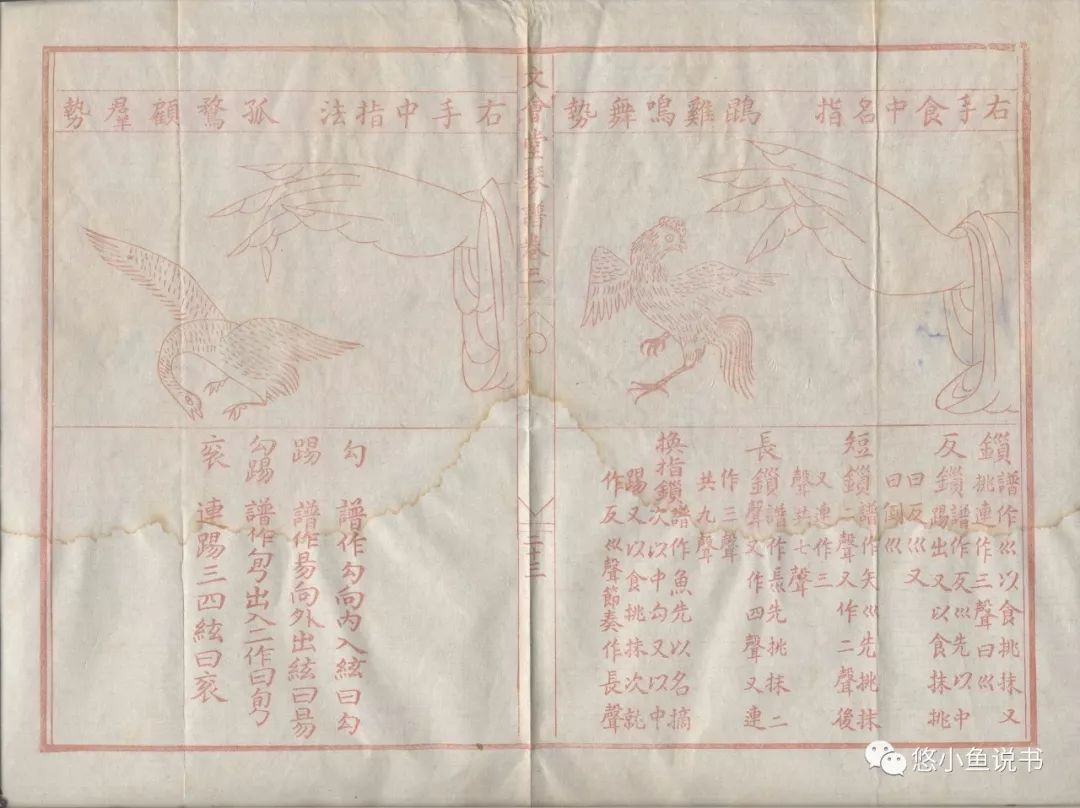 右手食中名指 鵾雞鳴舞勢
鎖 譜作巛以食挑抹又
挑連作三聲曰巛
反鎖 譜作反巛先以中
踢出又以食抹挑
曰反巛又
曰圓巛
短鎖 譜作矢巛先挑抹
二聲又作二聲後
又連作三
聲共七聲
長鎖 譜作長巛先挑抹二
聲又作四聲又連
作三聲
共九聲
換指鎖 譜作魚先以名摘
次以中勾又以中
踢又以食挑抹次就
作反巛聲節奏作長聲
文會堂琴譜卷三
二十三
右手中指法 孤鶩顧羣勢
勾 譜作勾向內入絃曰勾
踢 譜作昜向外出絃曰昜
勾踢 譜作出入二作曰
衮 連踢三四絃曰衮
悠小鱼说书